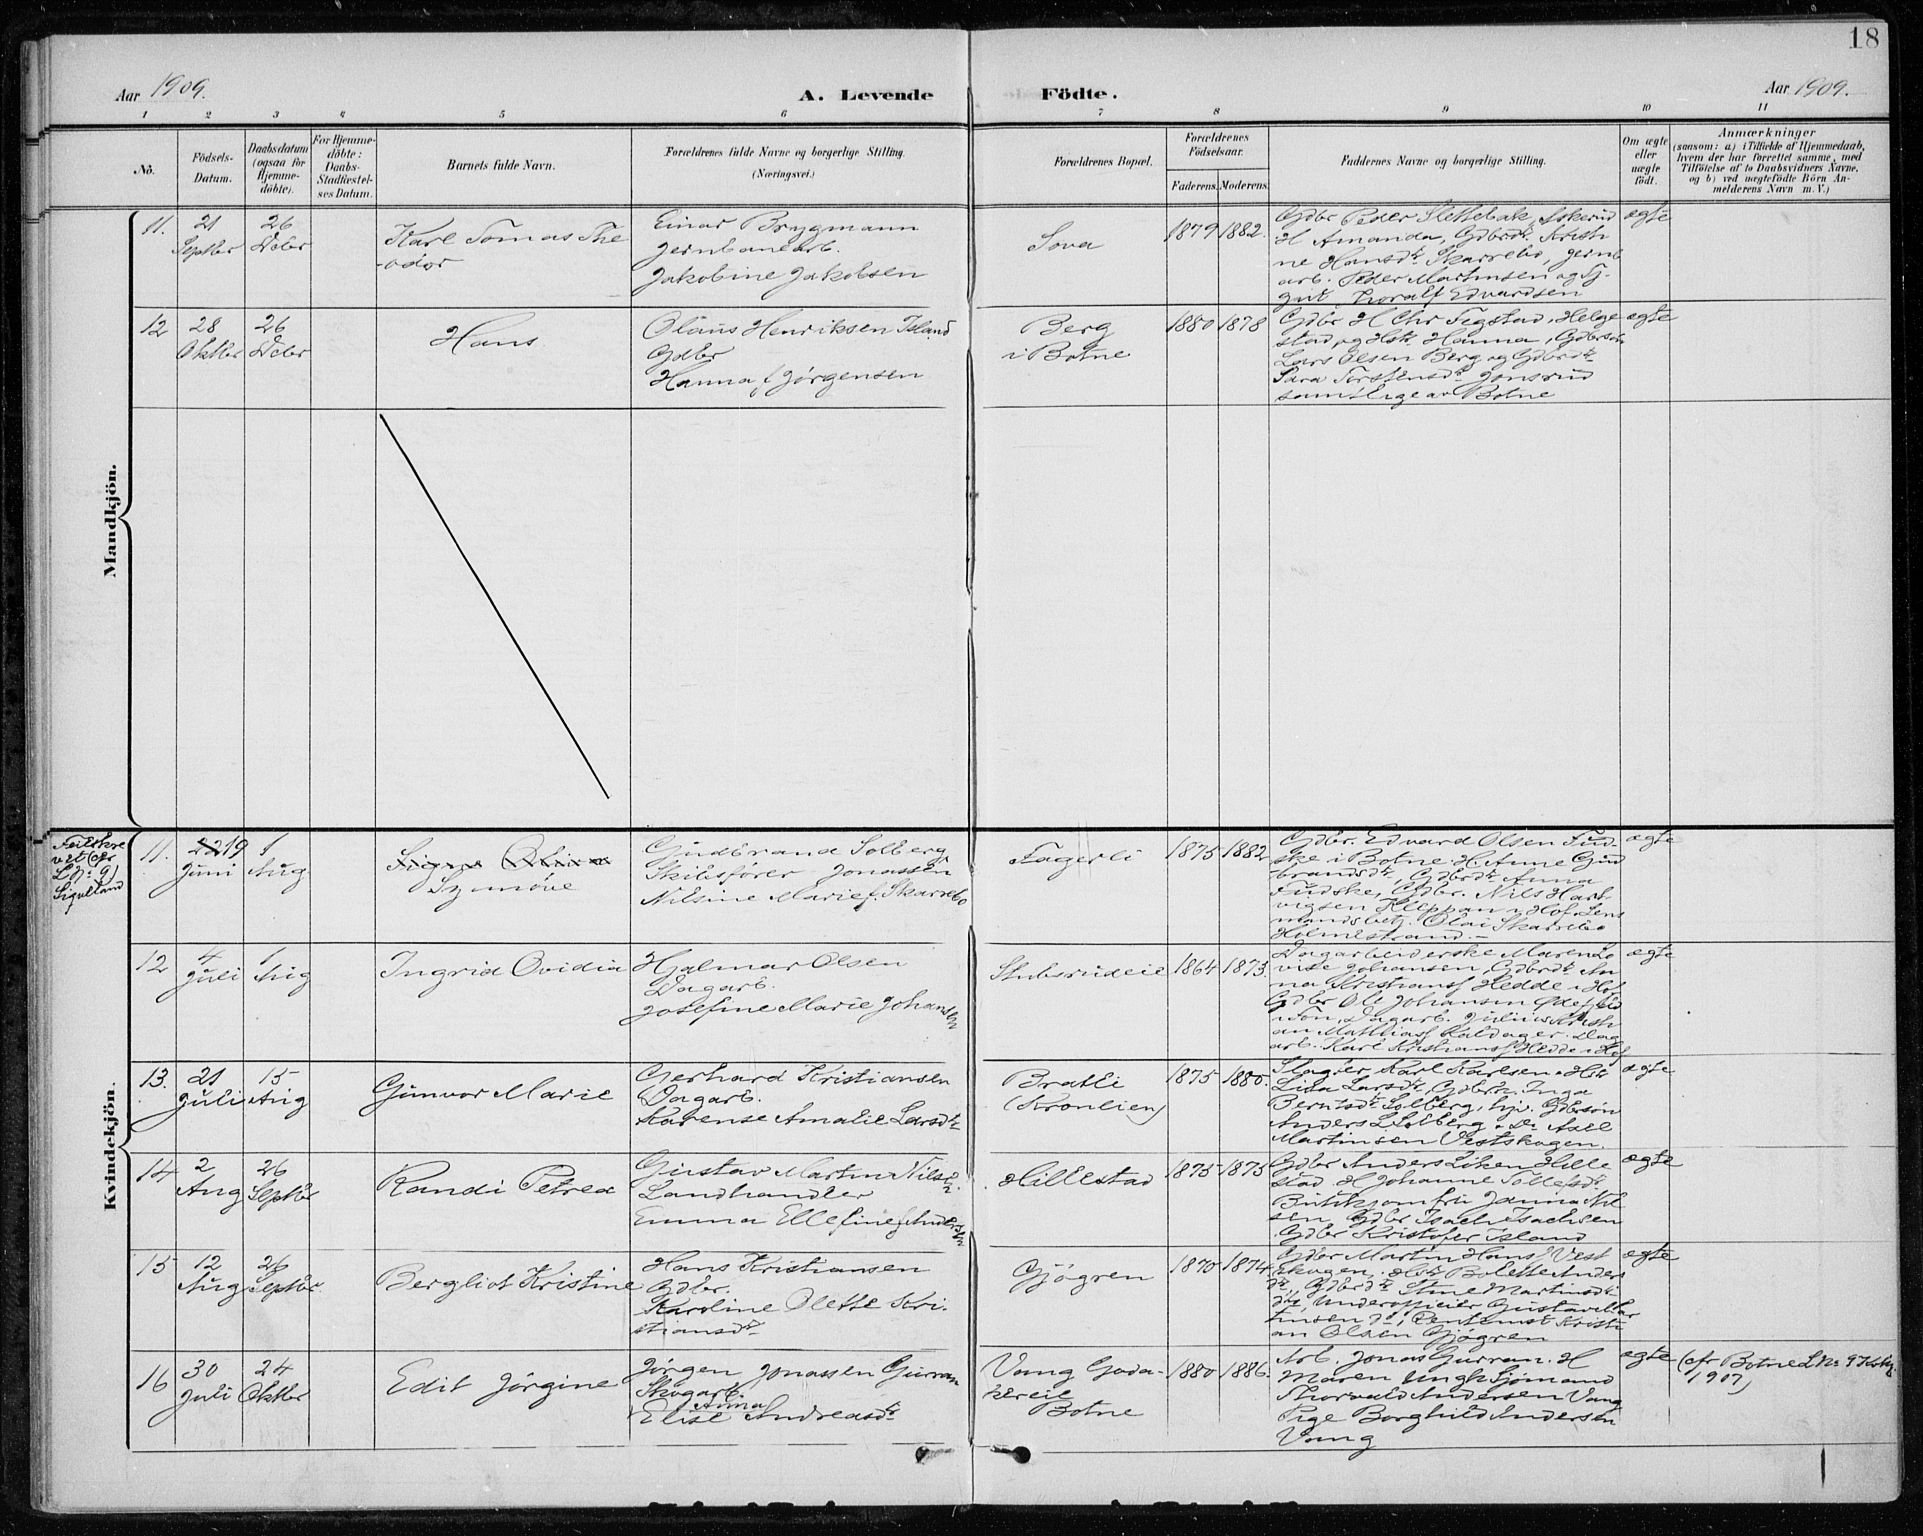 18
Aar 1909. A. Levende Födte. Aar 1909.
1 2 3 4 5 6 7 8 9 10 11
No.
Födsels-
Datum.
Daabsdatum
(ogsaa for
Hjemme-
döbte).
For Hjemme-
döbte:
Daabs-
Stadfæstel-
ses Datum.
Barnets fulde Navn.
Forældrenes fulde Navne og borgerlige Stilling.
(Næringsvei.)
Forældrenes Bopæl.
Forældrenes
Födselsaar.
Faderens. Moderens.
Faddernes Navne og borgerlige Stilling.
Om ægte
eller
uægte
födt.
Anmærkninger
(saasom: a) i Tilfælde af Hjemmedaab,
hvem der har forrettet samme, med
Tilföielse af to Daabsvidners Navne,
og b) ved uægtefödte Börn An-
melderens Navn m. V.)
Mandkjön.
11.
21
Septbr
26
Decbr
Karl Tomas The
-odor
Einar Brygmann
Jernbanearb.
Jakobine Jakobsen
Sova
1879 1882.
Gdbr Peder Slettebak, Askerud
H Amanda, Gdbrdtr Kristi
ne Hansdtr Skarrebo, Jernb
arb. Peder Martinsen og
gut Thoralf Edvardsen
ægte
12
28
Oktbr
26
Decbr
Hans
Olaus Henriksen Island
Gdbr
Hanna f Jørgensen
Berg
i Botne
1880 1878
Gdbr H Chr Fegstad, Helge
stad, og Hst Hanna, Gdbrsøn
Lars Olsen Berg og Gdbrdtr
Sara Torstensdtr Jonsrud
samtlige av Botne
ægte
Kvindekjön.
Feilskre
vet (cfr
L No 9)
11.
22 19
Juni
1
Aug
Synnöve
Gudbrand Solberg
Skibsfører Jonassen
Nilsine Marie f. Skarrebo
Fagerli
1875 1882
Gdbr. Edvard Olsen Fud-
ske i Botne. H Anne Gud
brandsdtr, Gdbrdtr Anna
Fudske, Gdbr. Nils Hart
vigsen Kleppan i Hof, Lens
mandsbetj. Olai Skarrebo
Holmestrand.-
ægte
12
4
Juli
1
Aug
Ingrid Ovidia
Hjalmar Olsen
Dagarb.
Josefine Marie Johansen
Stubsrudeie
1864 1873.
Dagarbeiderske Maren Lo
vise Johansen, Gdbrdtr An
na Kristiansf Hedde i Hof
Gdbr Ole Johansen
i Søn, Dagarb. Julius Kristi
an Mathiasf Kaldager. Dag
arb. Karl Kristiansf Hedde i Hof
ægte
13.
21
Juli
15
Aug
Gunvor Marie
Gerhard Kristiansen
Dagarb.
Karense Amalie Larsdtr
Bratli
(Kronlien)
1875 1880.
Slagter Karl Karlsen. Hst
Lisa Larsdtr, Gdbrk. Inga
Berntsdtr Solberg, hj. Gdbrsøn
Anders L Solberg. Do Axel
Martinsen Vestskogen
ægte
14
2
Aug
26
Septbr
Randi Petrea
Gustav Martin Nilse
n.
Landhandler
Emma Ellefine f Andersen
Hillestad
1875 1875
Gdbr Anders Liken Hille
stad. H Johanne Tollefsdtr
Butikjomfru Janna Nil
sen Gdbr Isach Isachsen
Gdbr Kristofer Island
ægte
15
12
Aug
26
Septbr
Bergliot Kristine
Hans Kristiansen
Gdbr.
Karoline Olette Kri.
stiansdtr
Gjøgren
1870 1874.
Gdbr Martin Hansf Vest
skogen, Hstr Bolette Anders
dtr, Gdbrdtr Stine Martinsd
do, Underofficier Gustav Mar
tinsen do, Pentemst Kristi
an Olsen Gjøgren
ægte
16
30
Juli
24
Oktbr
Edit Jörgine
Jörgen Jonassen Gurran
Skogarb.
Anna
Elise Andreasdtr
Vang Goda-
kereie
Botne
1880 1886.
Arb. Jonas Gurran. H
Maren Ungk Sjömand
Thorvald Andersen Vang
Pige Borghild Andersen
Vang
ægte
(cfr Botne L No 9
1907)